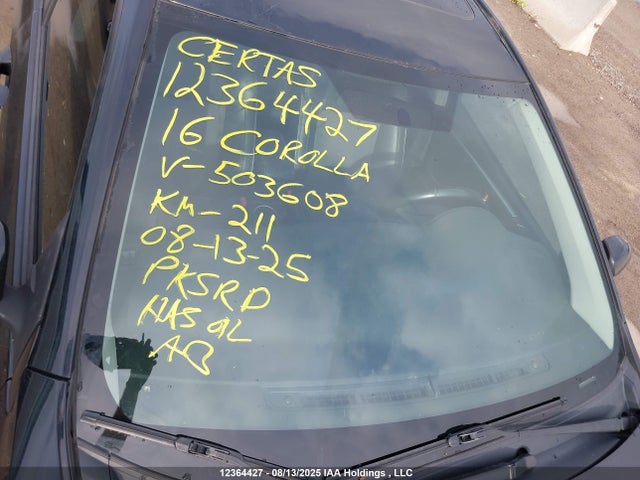 CERTAS
12364427
16 COROLLA
V-503608
KM-211
08-13-25
PKSRD
HAS OL
AB
12364427 - 08/13/2025 IAA Holdings , LLC